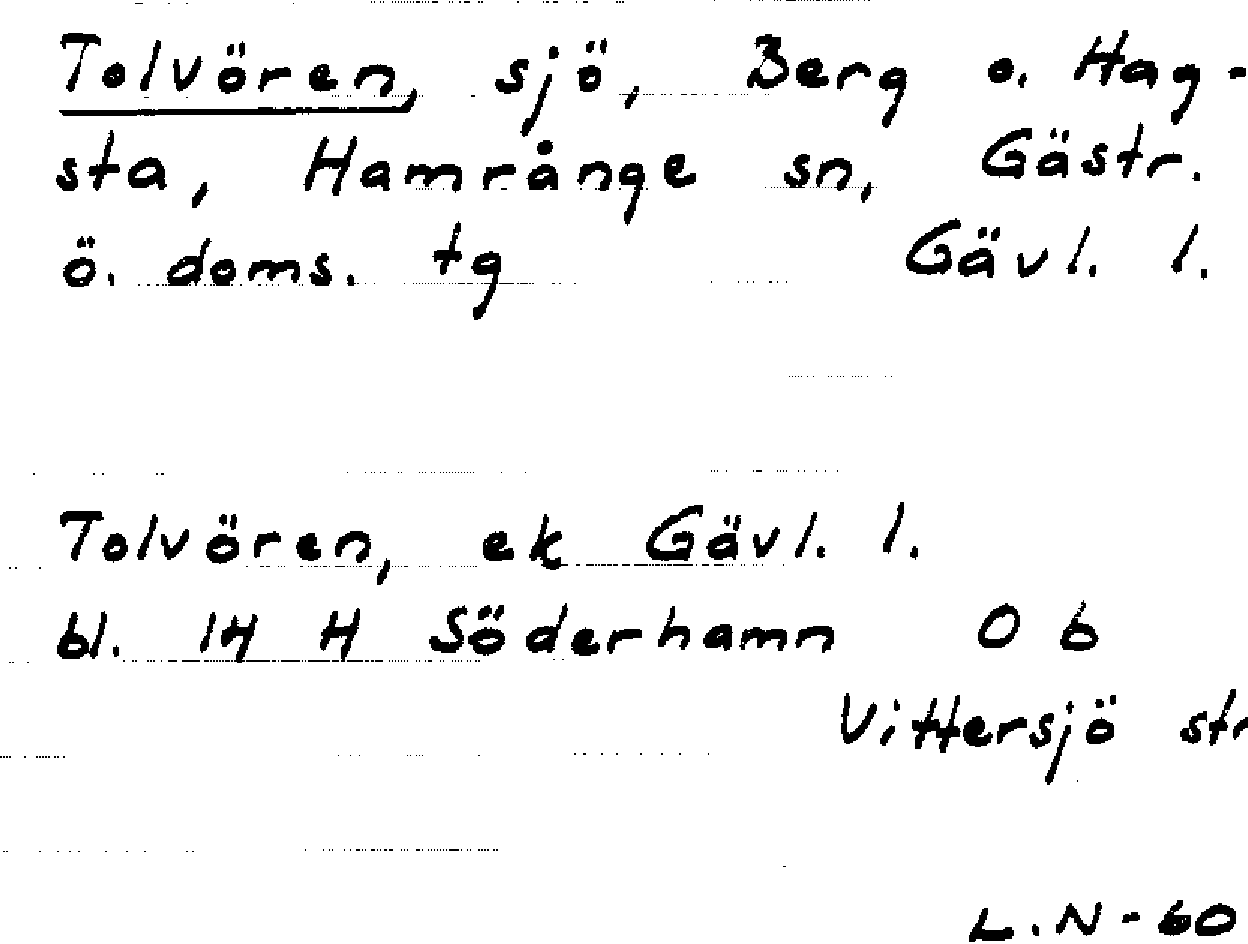 Tolvören, sjö, Berg o. Hag-
sta, Hamrånge sn, Gästr.
ö. doms. tg Gävl. l.
Tolvören, ek Gävl. l.
bl. 14 H Söderhamn 0 b
Vittersjö str
L.N-60